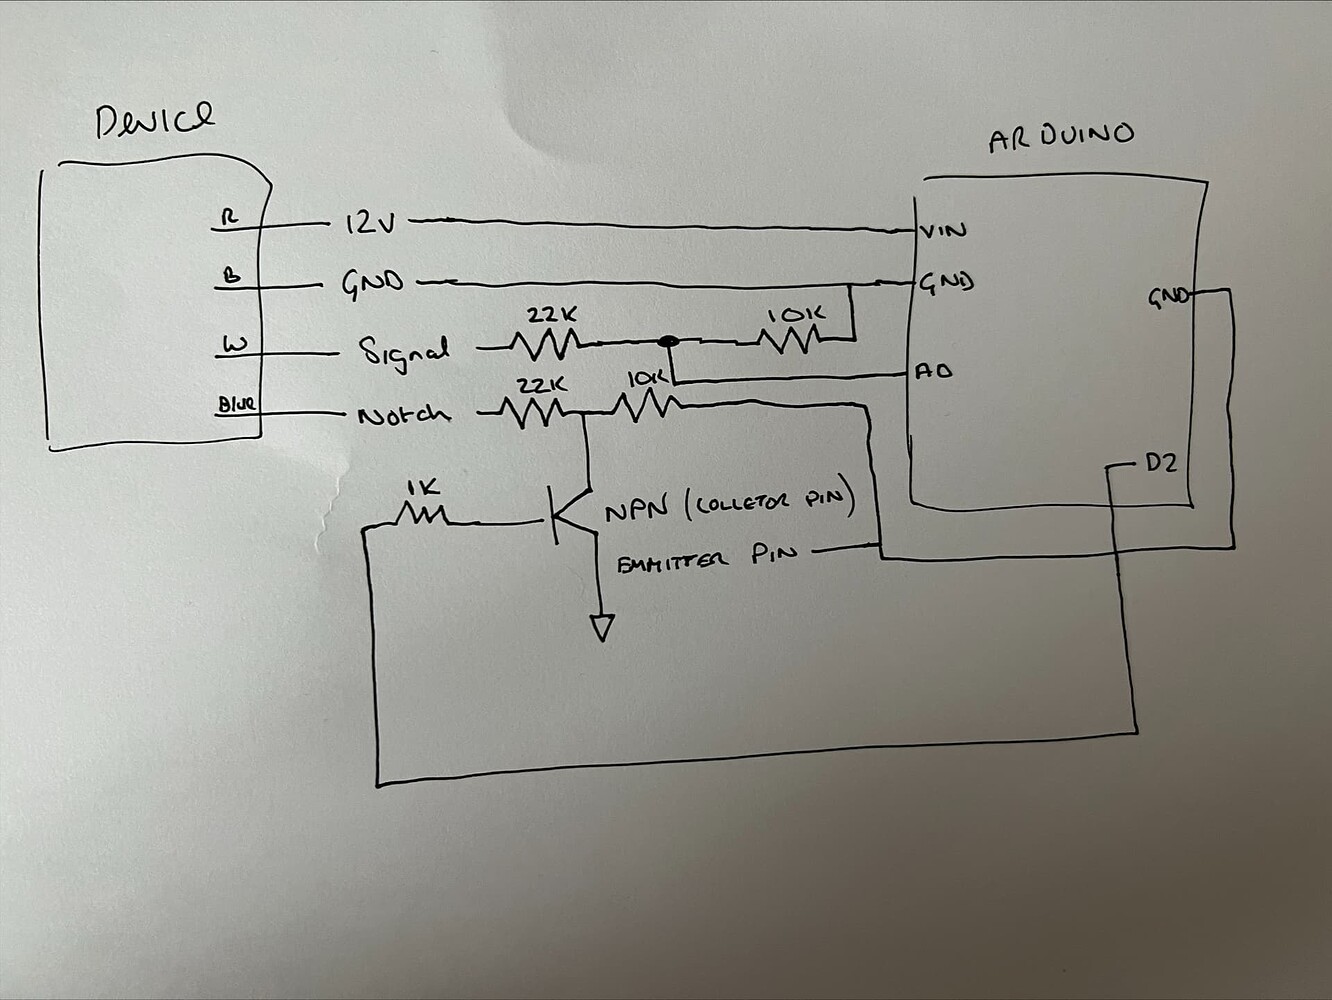 Device
ARDUINO
R 12V VIN
B GND GND
GND
22K 10K
W Signal
A0
22K 10K
Blue Notch
D2
1K
NPN (COLLETOR PIN)
EMMITTER PIN